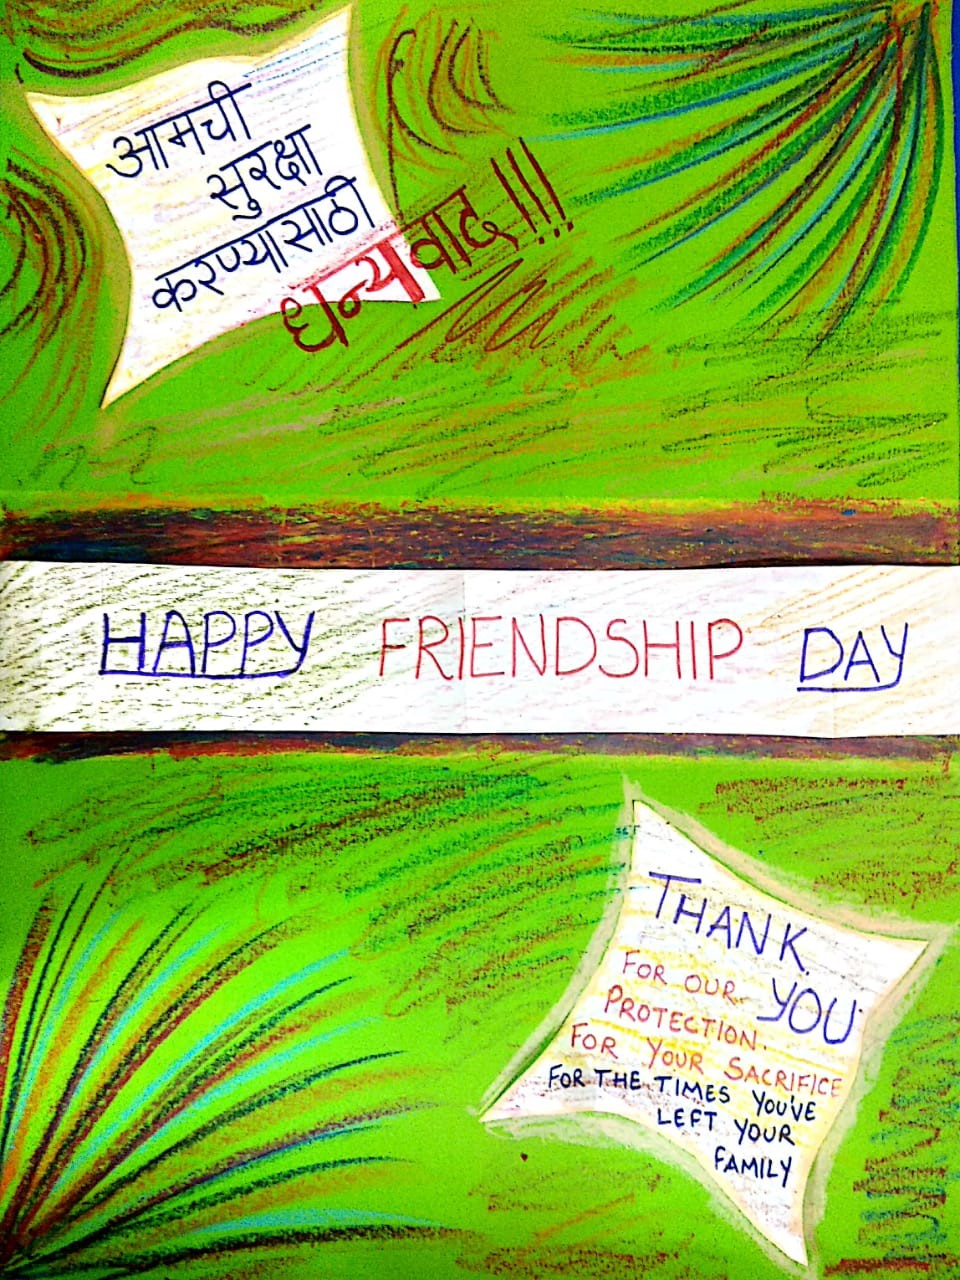 आमची
सुरक्षा
करण्यासाठी
धन्यवाद !!!
HAPPY FRIENDSHIP DAY
THANK
YOU
FOR OUR
PROTECTION.
FOR YOUR SACRIFICE
FOR THE TIMES YOU'VE
LEFT YOUR
FAMILY